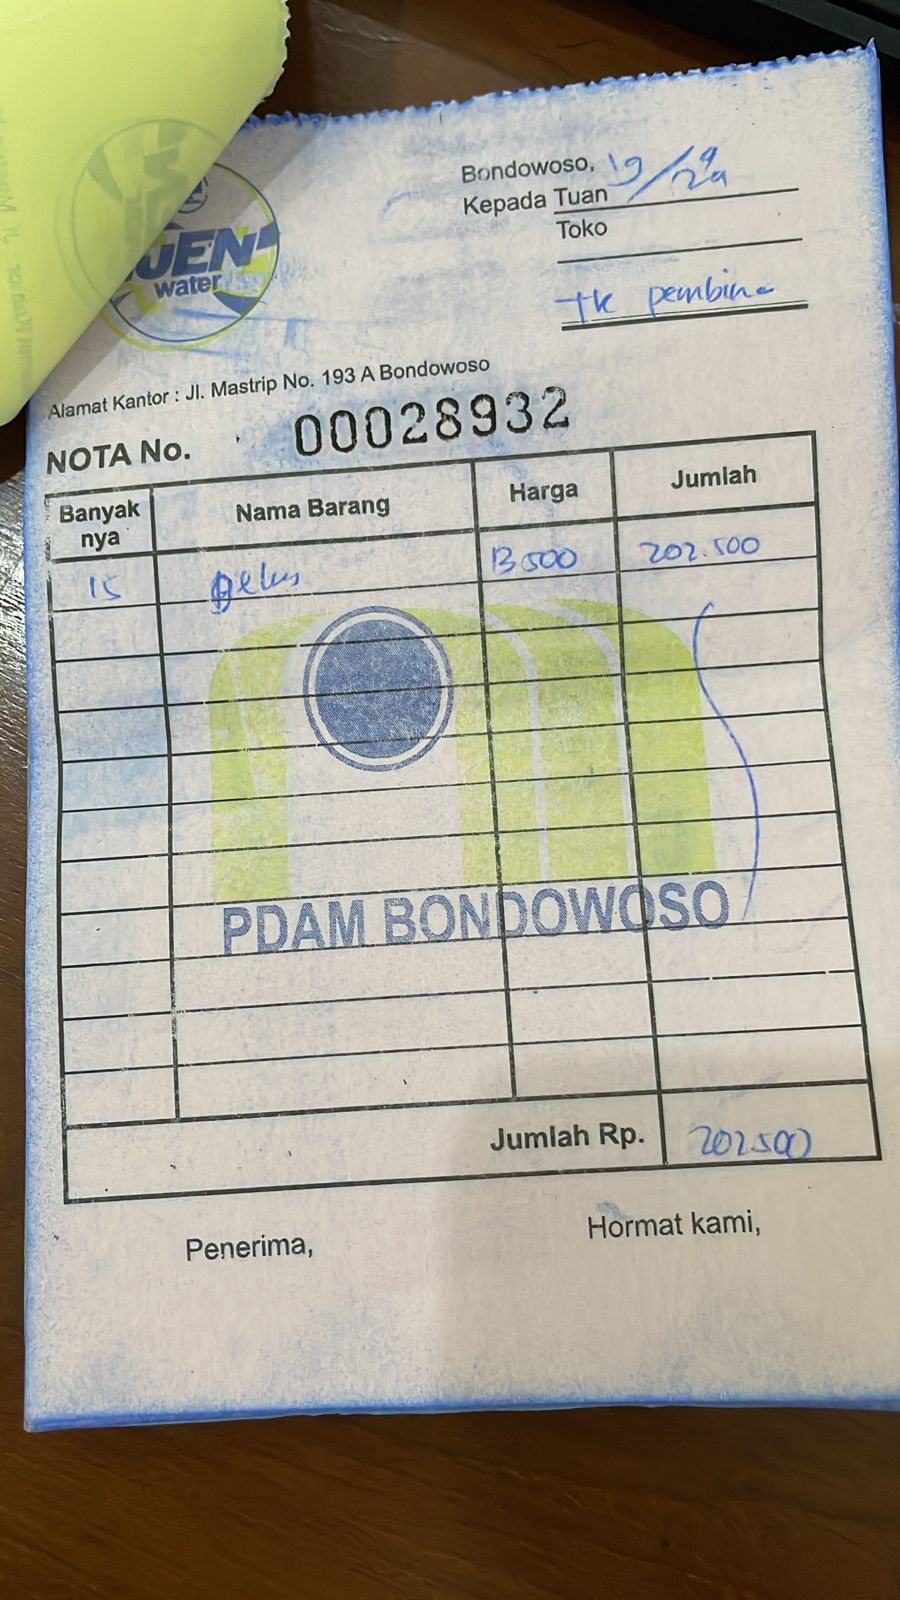 JEN
water
Bondowoso, 19/
Kepada Tuan
Toko
TK pembina
Alamat Kantor : Jl. Mastrip No. 193 A Bondowoso
NOTA No. 00028932
Banyak nya Nama Barang Harga Jumlah
15 gelas 13.500 202.500
PDAM BONDOWOSO
Jumlah Rp. 202.500
Penerima, Hormat kami,